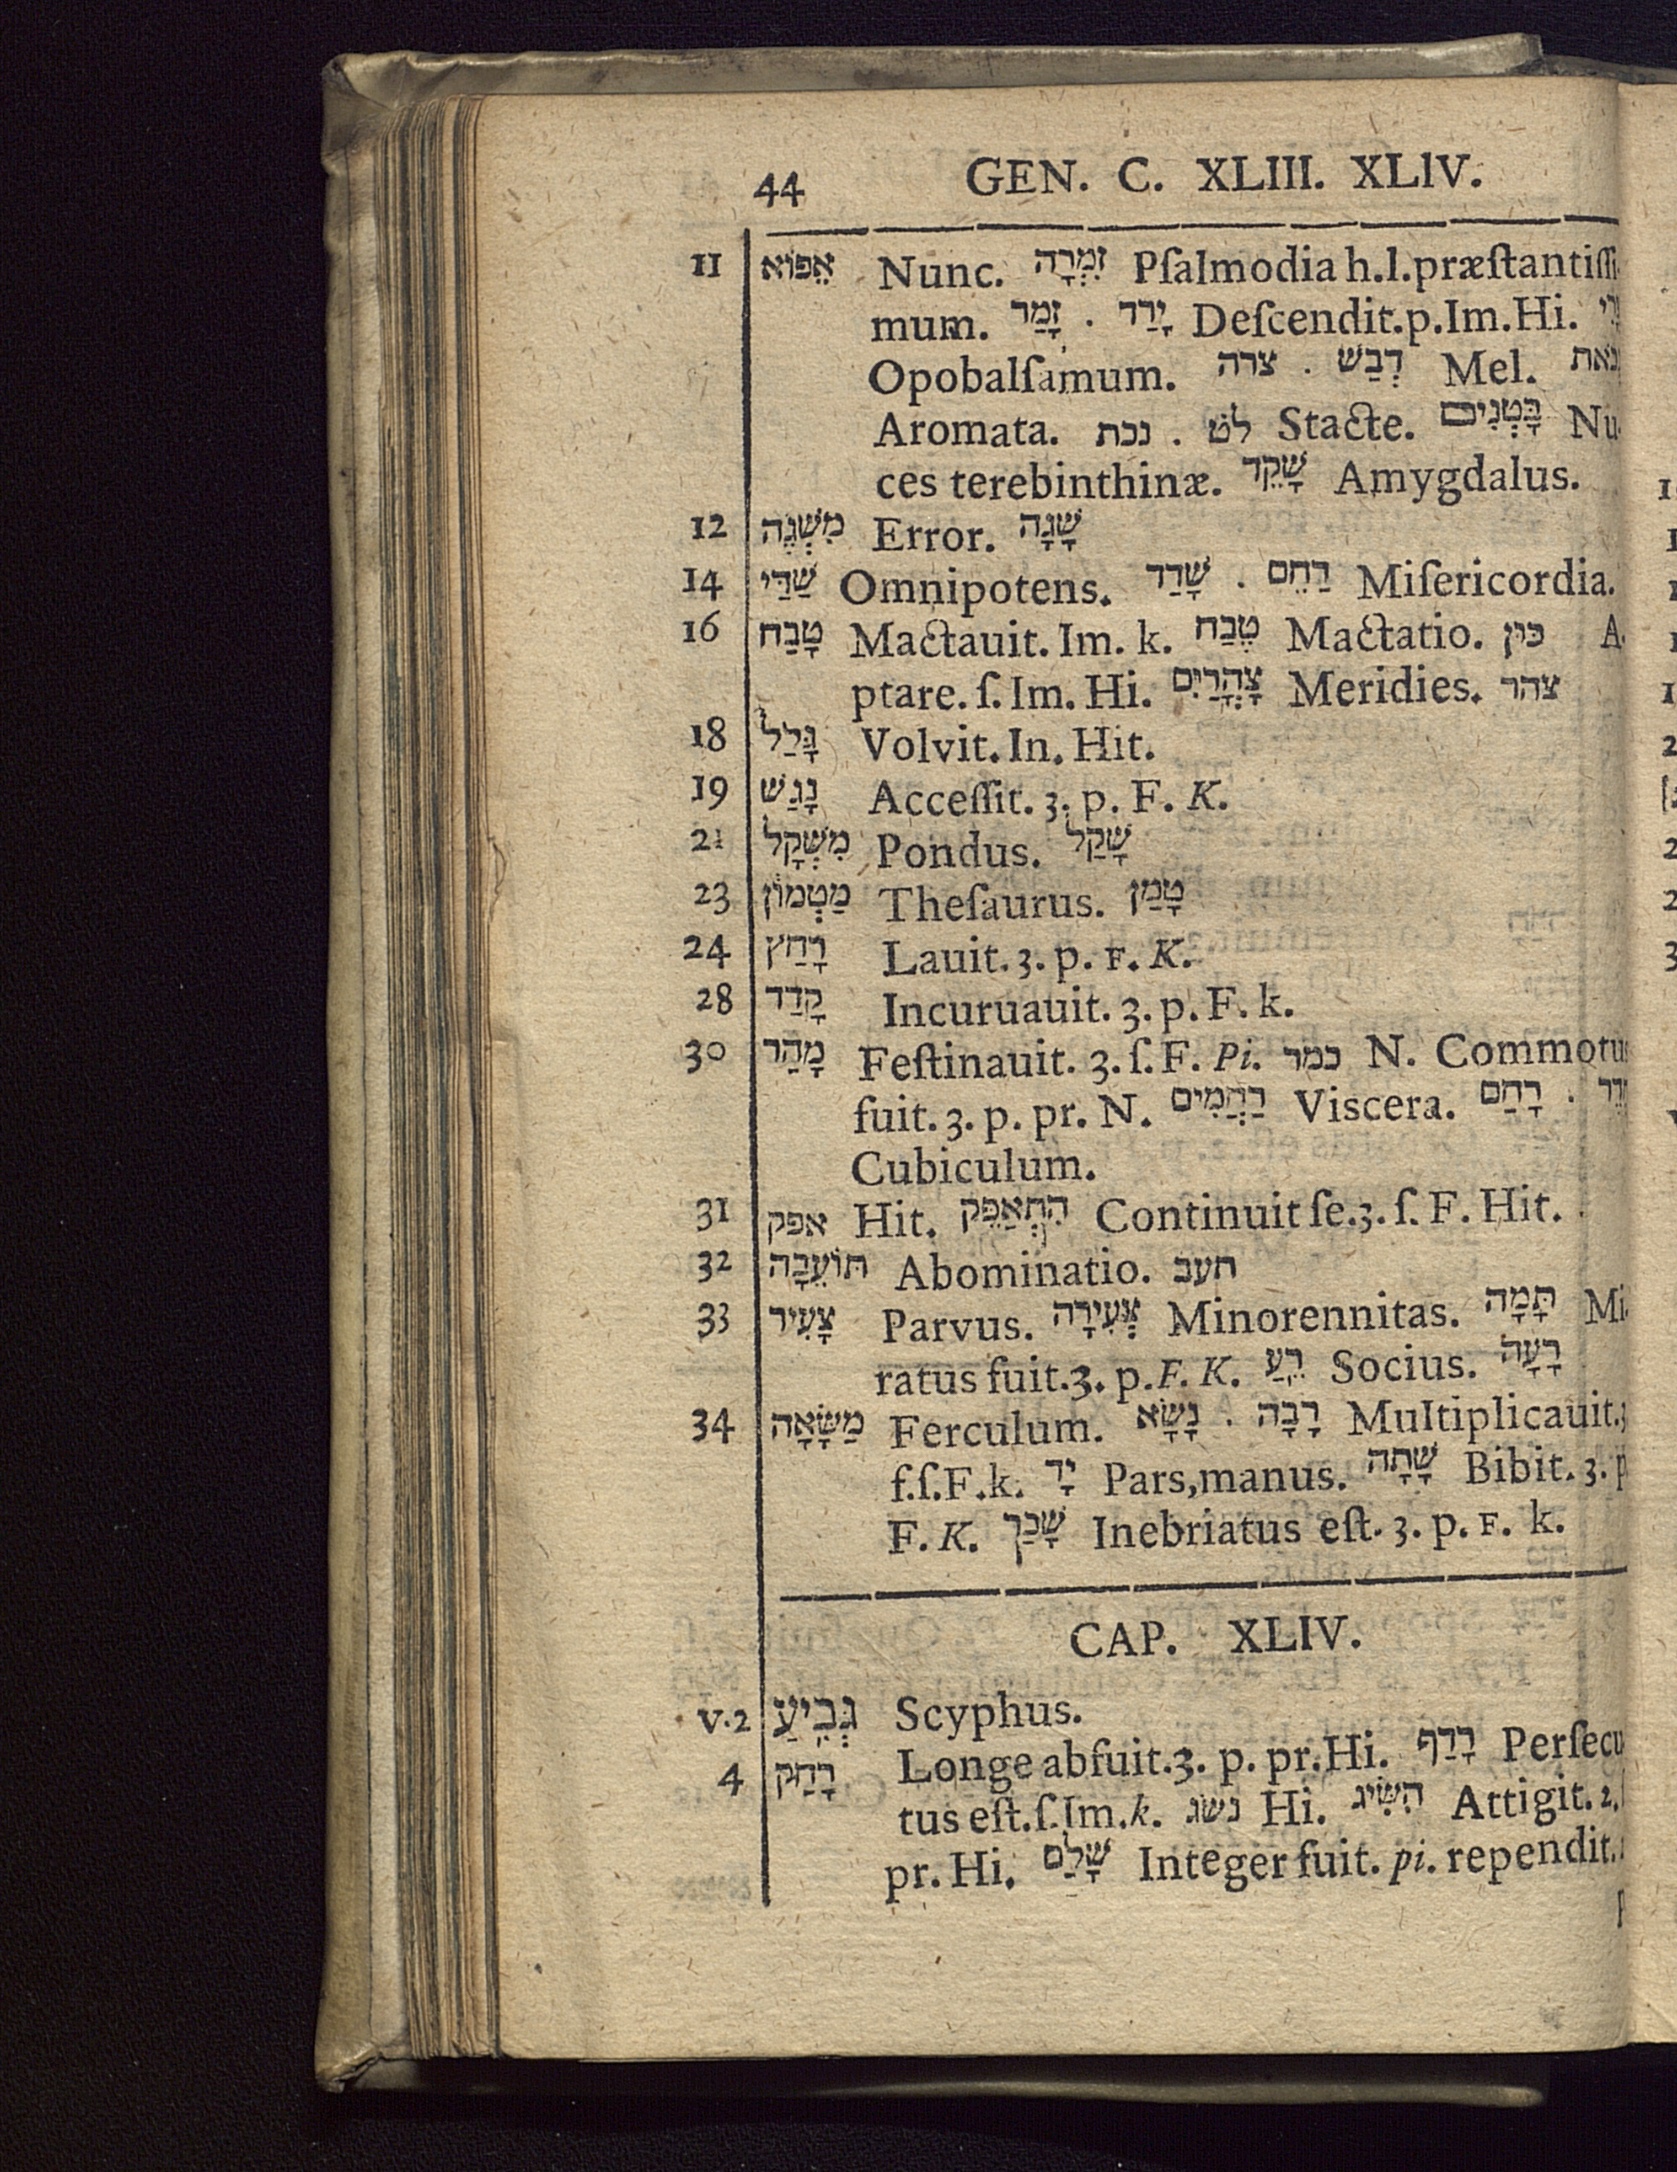 44 GEN. C. XLIII. XLIV.
11 אֵפוֹא Nunc. זִמְרָה Pſalmodia h.l.præſtantiſſi-
mum. זָמַר . יָרַד Deſcendit.p.Im.Hi.
Opobalſamum. צרה . דְּבַשׁ Mel.
Aromata. נכת . לֹט Stacte. בָּטְנִים Nu-
ces terebinthinæ. שָׁקֵד Amygdalus.
12 מִשְׁגֶּה Error. שָׁגָה
14 שַׁדַּי Omnipotens. שָׁדַד . רַחֵם Miſericordia.
16 טָבַח Mactauit. Im. k. טֶבַח Mactatio. כּוּן A-
ptare. ſ. Im. Hi. צָהֳרַיִם Meridies. צהר
18 גָּלַל Volvit. In. Hit.
19 נָגַשׁ Acceſſit. 3. p. F. K.
21 מִשְׁקָל Pondus. שָׁקַל
23 מַטְמוֹן Theſaurus. טָמַן
24 רָחַץ Lauit. 3. p. F. K.
28 קָדַד Incuruauit. 3. p. F. k.
30 מָהַר Feſtinauit. 3. ſ. F. Pi. כמר N. Commotus
fuit. 3. p. pr. N. רַחֲמִים Viscera. רָחַם .
Cubiculum.
31 אפק Hit. הִתְאַפֵּק Continuit ſe.3. ſ. F. Hit.
32 תּוֹעֵבָה Abominatio. תעב
33 צָעִיר Parvus. צְעִירָה Minorennitas. תָּמָה Mi-
ratus fuit.3. p. F. K. רֵעַ Socius. רָעָה
34 מַשָּׂאָה Ferculum. נָשָׂא . רָבָה Multiplicauit.3
f.ſ.F.k. יָד Pars,manus. שָׁתָה Bibit. 3. p
F. K. שָׁכַר Inebriatus eſt. 3. p. F. k.
CAP. XLIV.
V.2 גְּבִיעַ Scyphus.
4 רָחַק Longe abfuit.3. p. pr.Hi. רָדַף Perſecu
tus eſt.ſ.Im.k. נשג Hi. הִשִּׂיג Attigit. 2.
pr. Hi. שָׁלֵם Integer fuit. pi. rependit.